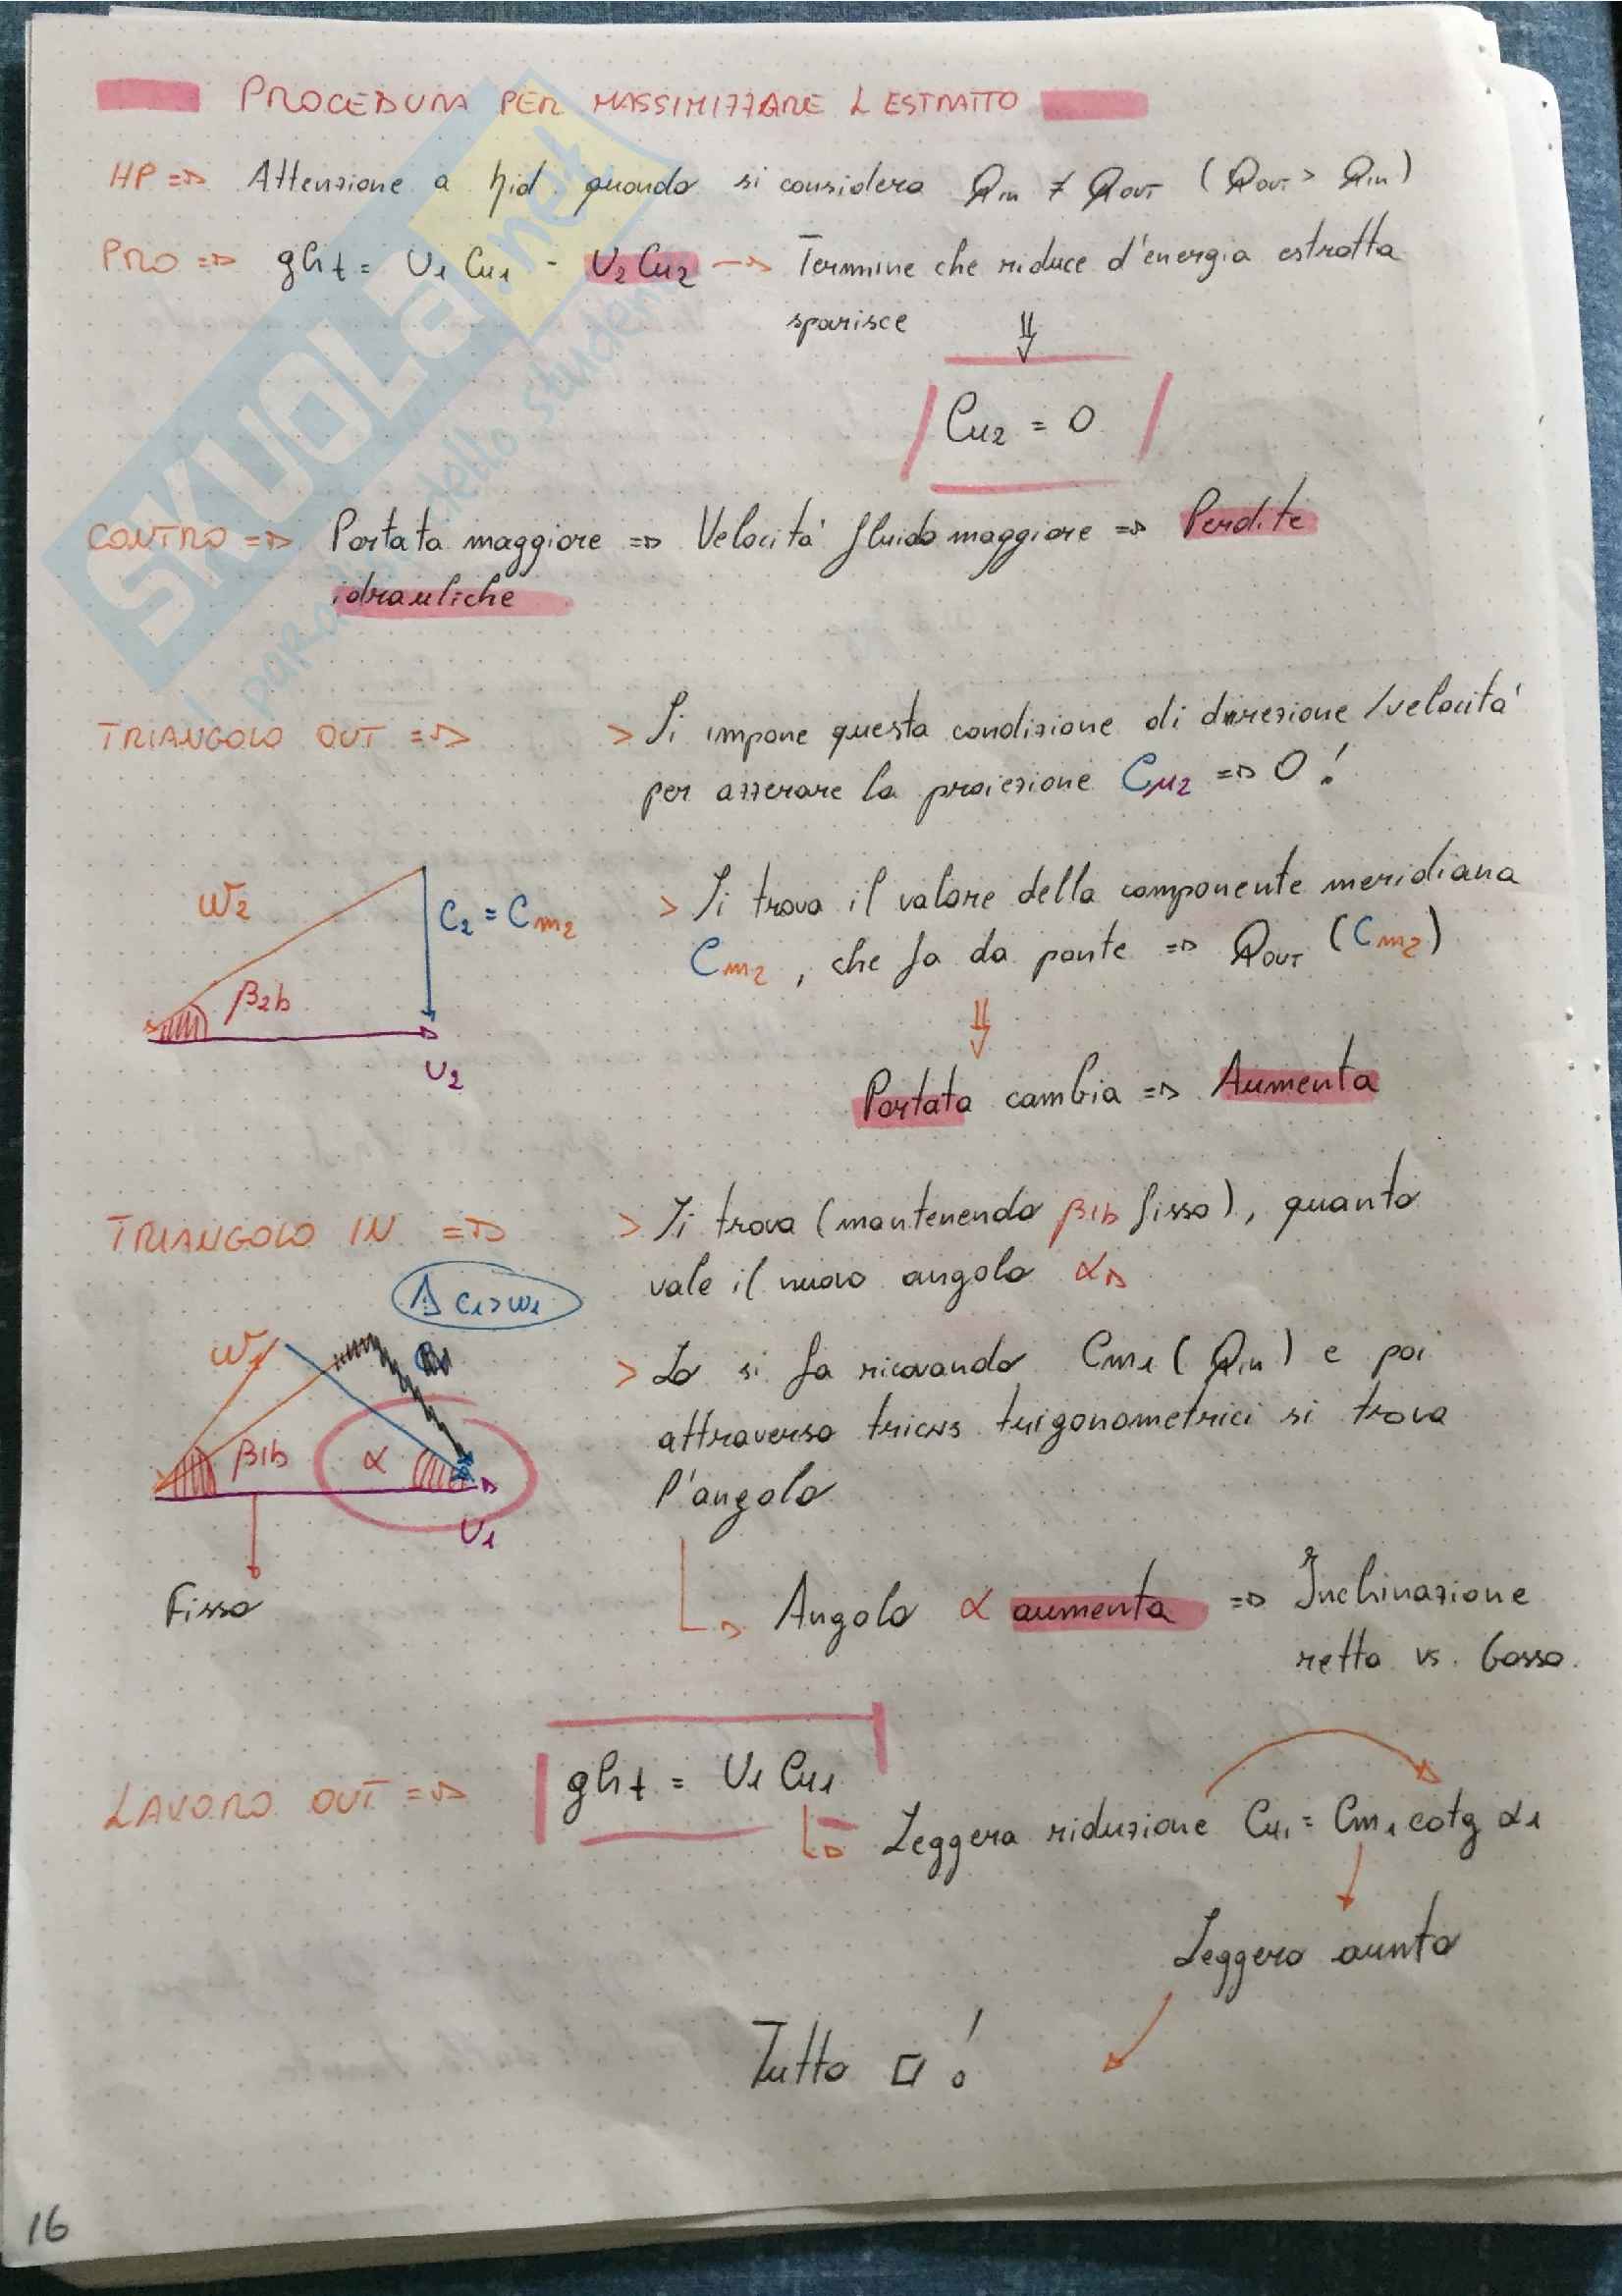 PROCEDURA PER MASSIMIZZARE L ESTRATTO
HP => Attenzione a ηid quando si considera Qin ≠ Qout (Qout > Qin)
PRO => ght = U1 Cu1 - U2 Cu2 -> Termine che riduce l'energia estratta
sparisce ⇓
Cu2 = 0
CONTRO => Portata maggiore => Velocità fluido maggiore => Perdite
idrauliche
TRIANGOLO OUT => > Si impone questa condizione di direzione/velocità
per azzerare la proiezione Cu2 => 0!
W2
C2 = Cm2
β2b
U2
> Si trova il valore della componente meridiana
Cm2, che fa da ponte => QOUT (Cm2)
⇓
Portata cambia => Aumenta
TRIANGOLO IN => > Si trova (mantenendo β1b fisso), quanto
vale il nuovo angolo α1
⚠ C1>W1
W1
β1b
α
U1
Fisso
> Lo si fa ricavando Cm1 (Qin) e poi
attraverso tricks trigonometrici si trova
l'angolo
Angolo α aumenta => Inclinazione
retta vs. basso.
LAVORO OUT => ght = U1 Cu1
Leggera riduzione Cu1 = Cm1 cotg α1
Leggero aumto
Tutto □!
16
SKUOLA.net